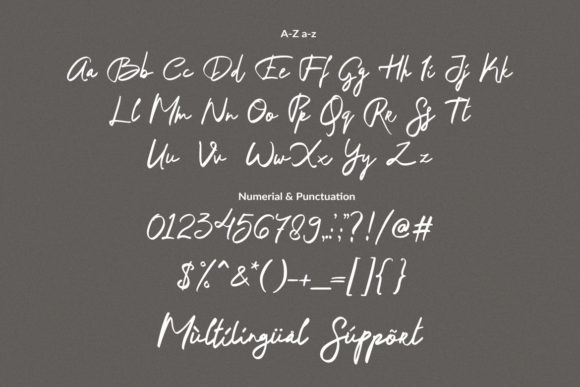 A-Z a-z
Aa Bb Cc Dd Ee Ff Gg Hh Ii Jj Kk
Ll Mm Nn Oo Pp Qq Rr Ss Tt
Uu Vv Ww Xx Yy Zz
Numerial & Punctuation
0123456789,.:;"?!/@#
$%^&*()-+_=[]{}
Mùltílingüal Súppõrt